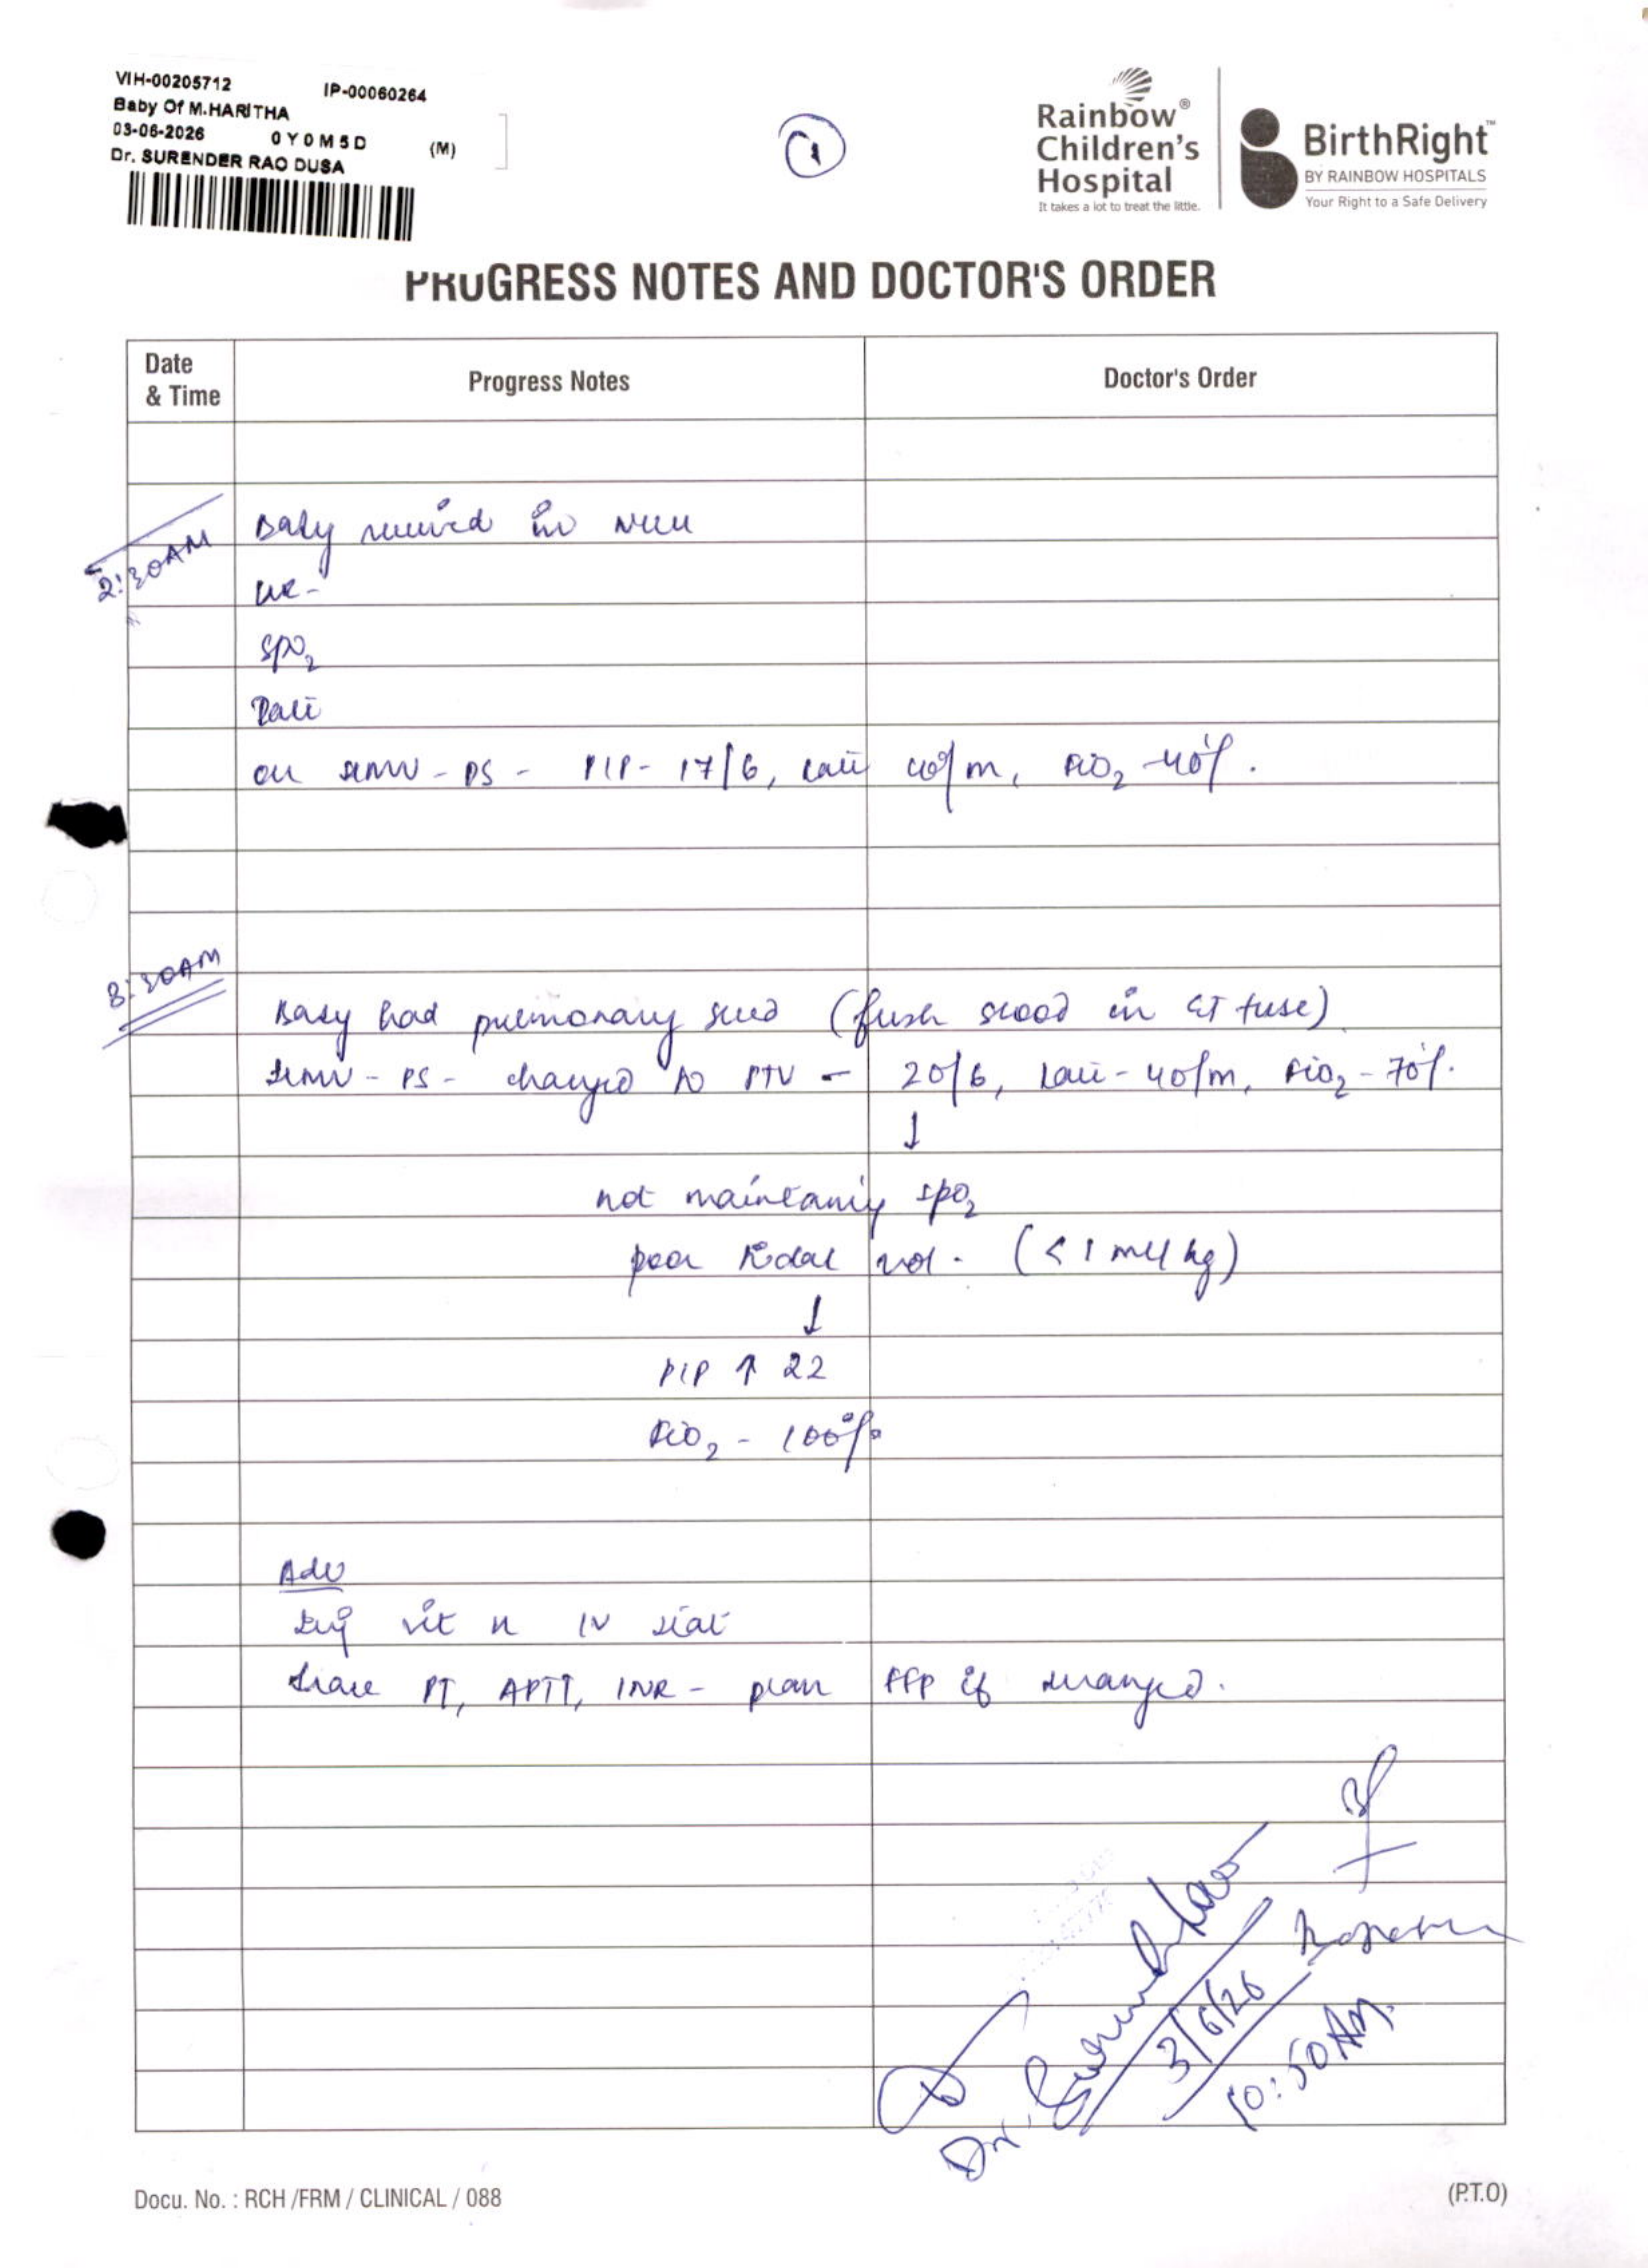 VIH-00205712 IP-00060264
Baby Of M.HARITHA
03-06-2026 0Y0M5D (M)
Dr. SURENDER RAO DUSA
1
Rainbow®
Children's
Hospital
It takes a lot to treat the little.
BirthRight™
BY RAINBOW HOSPITALS
Your Right to a Safe Delivery
PROGRESS NOTES AND DOCTOR'S ORDER
Date & Time Progress Notes Doctor's Order
2:30AM Baby received in NICU
HR-
SpO2
Rate
on SIMV - PS - PIP- 17/6, rate 40/m, FiO2 -40%.
8:30AM
Baby had pulmonary bleed (fresh blood in ET tube)
SIMV - PS - changed to PTV - 20/6, rate - 40/m, FiO2 - 70%.
↓
not maintaining SpO2
poor tidal vol. (<1 ml/kg)
↓
PIP ↑ 22
FiO2 - 100%
Adv
Inj vit K IV stat
trace PT, APTT, INR - plan FFP if deranged.
Dr. Surender Rao
3/6/26
10:50AM.
Docu. No. : RCH /FRM / CLINICAL / 088
(P.T.O)